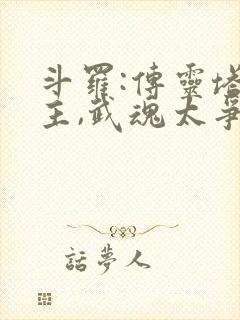 斗羅:傳靈塔
主,武魂太爭
話夢人